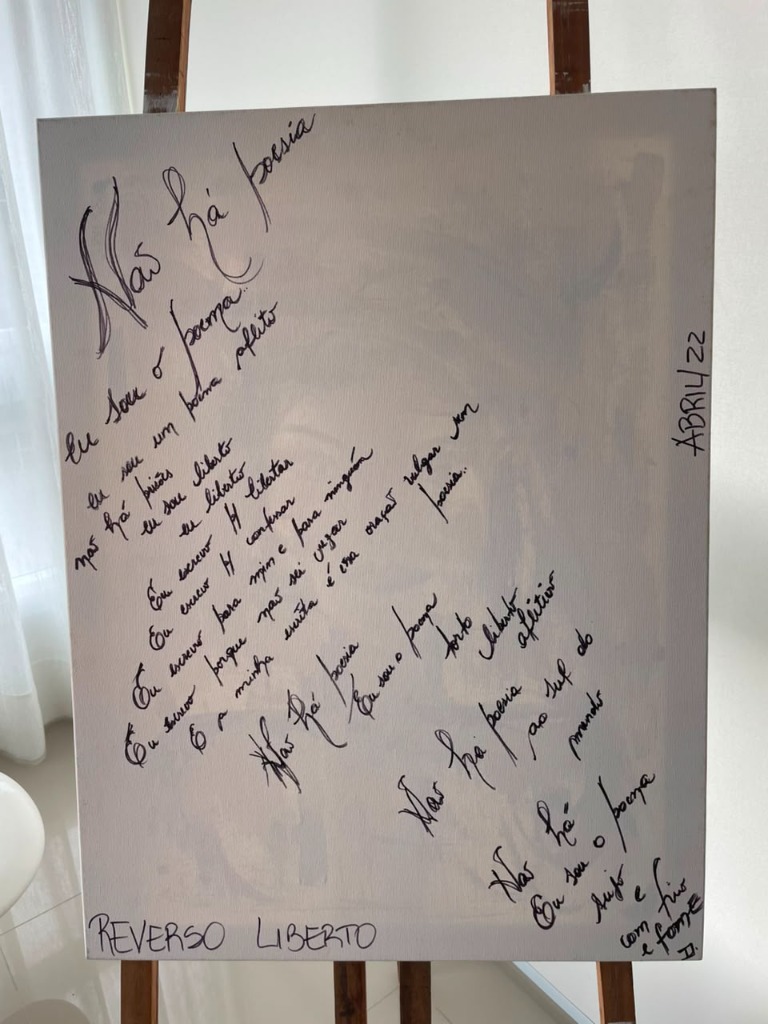 Não há poesia
Eu sou o poema..
Eu sou um poema aflito
não há prisões
eu sou liberto
eu liberto
Eu escrevo p/ libertar
Eu escrevo p/ confessar
Eu escrevo para mim e para ninguém
Eu escrevo porque não sei rezar
E a minha escrita é essa oração vulgar sem
poesia..
Não há poesia
Eu sou o poema
torto
liberto
aflitivo
Não há poesia
ao sul do
mundo
Não há
Eu sou o poema
sujo e
com frio
e fome
D.
REVERSO LIBERTO
ABRIL/22